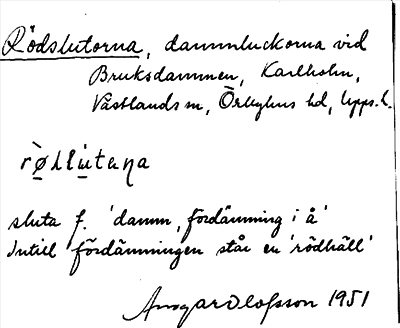 Rödslutorna, dammluckorna vid
Bruksdammen, Karlholm,
Västlands sn, Örbyhus hd, Upps. l.
rø̀llu̇taṇa
sluta f. 'damm, fördämning i å'
Intill fördämningen står en 'rödhäll'
Ansgar Olofsson 1951